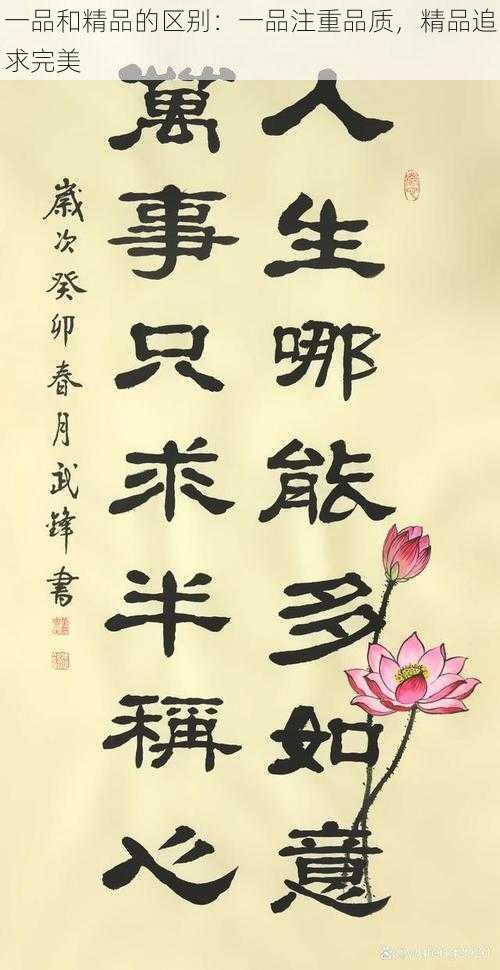 一品和精品的区别：一品注重品质，精品追
求完美
人生哪能多如意
萬事只求半稱心
歲次癸卯春月武鋒書